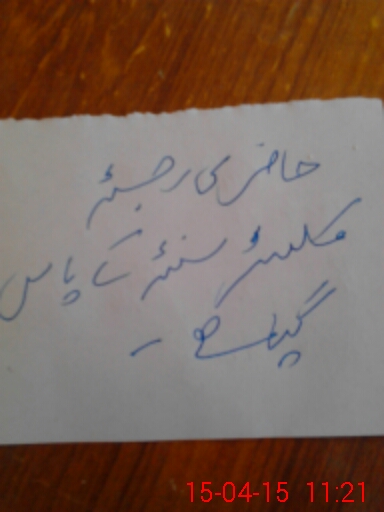 حاضری رجسٹر
کلسٹر سنٹر کے پاس
گیا ہے ۔
15-04-15 11:21